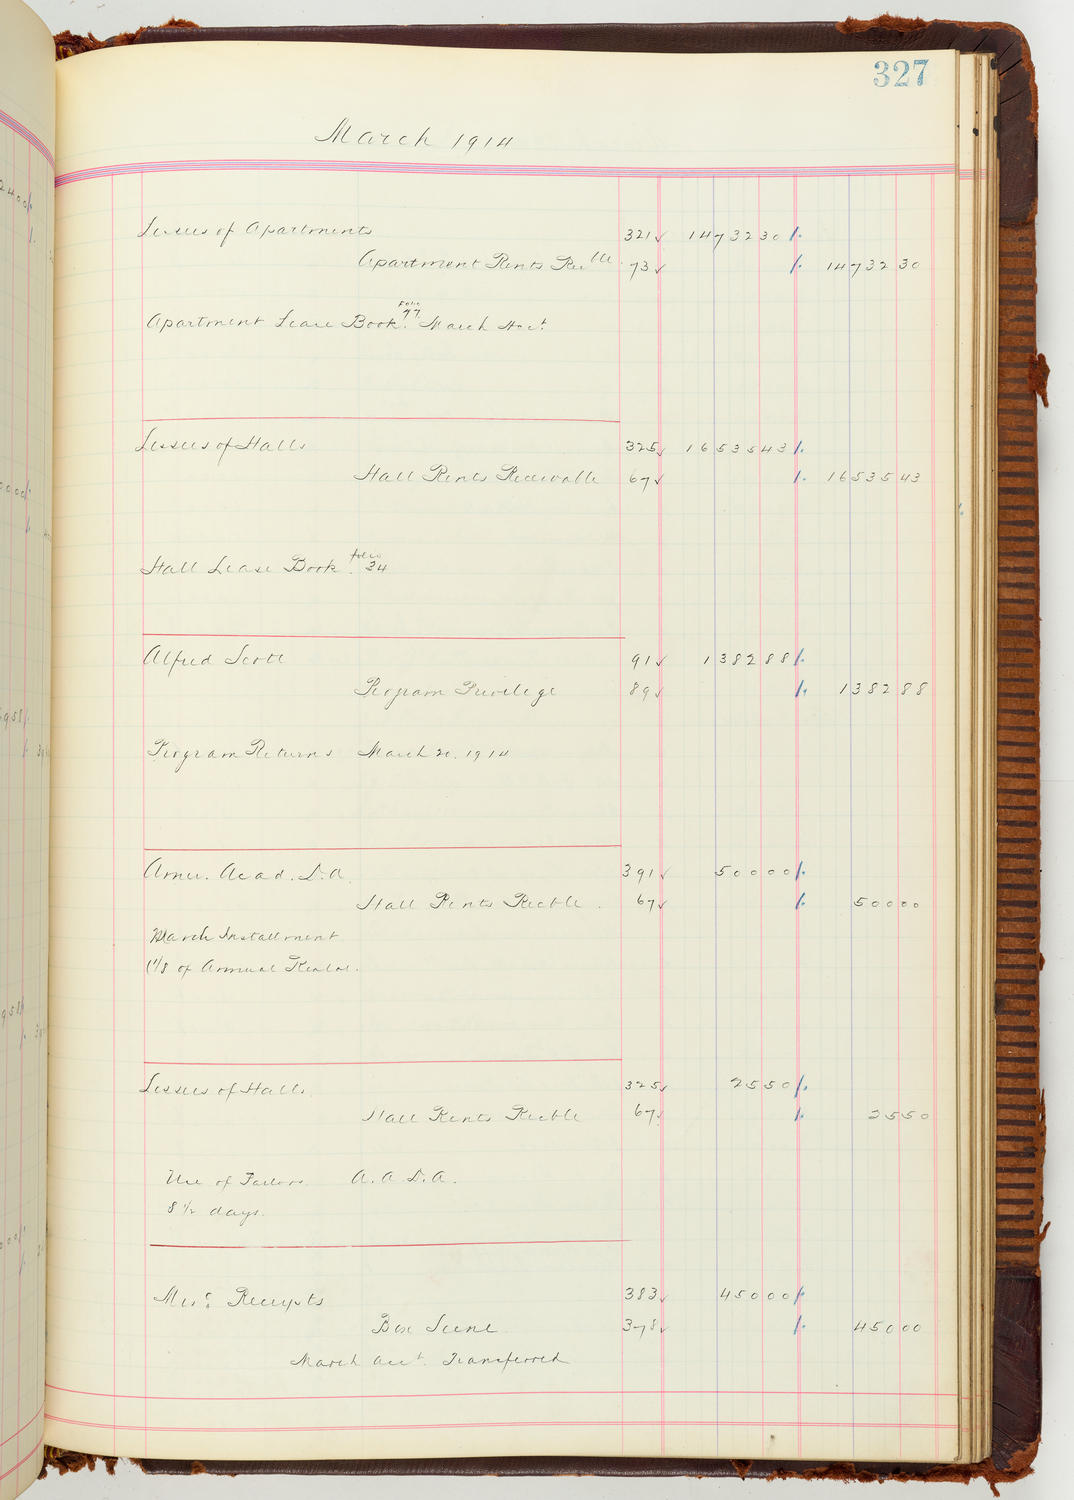 327
March 1914
Lessees of Apartments 321 ✓ 14732 30
Apartment Rents Rec ble 73 ✓ 14732 30
Folio
Apartment Lease Book. 97. March Acct.
Lessees of Halls 325 ✓ 16535 43
Hall Rents Receivable 67 ✓ 16535 43
folio
Hall Lease Book. 34
Alfred Scott 91 ✓ 1382 88
Program Privilege 89 ✓ 1382 88
Program Returns March 20. 1914
Amer. Acad. D.A. 391 ✓ 500 00
Hall Rents Recble. 67 ✓ 500 00
March Installment
(1/8 of Annual Rental.
Lessees of Halls. 325 ✓ 25 50
Hall Rents Recble 67 ✓ 25 50
Use of A.A.D.A.
8 1/2 days.
Misc. Receipts 383 ✓ 450 00
Box Scene 378 ✓ 450 00
March acct. Transferred